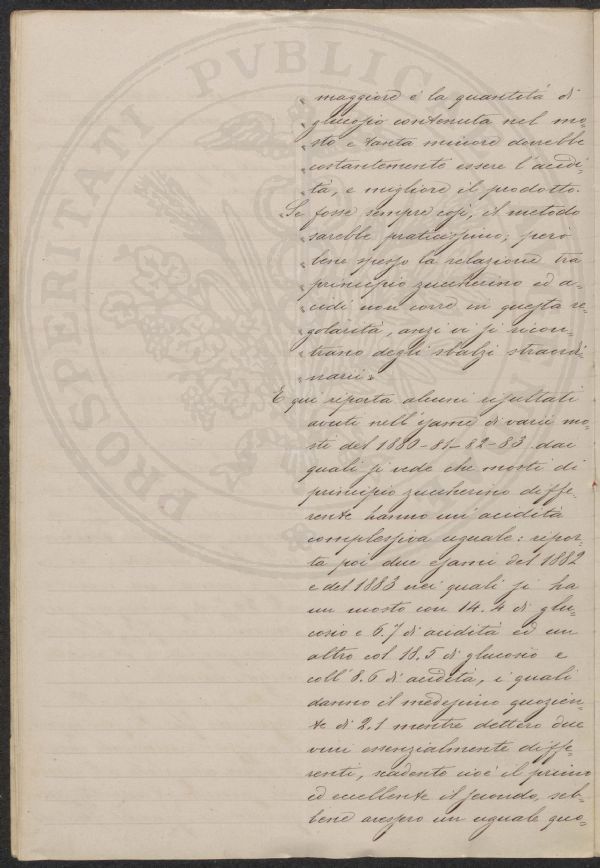 „ maggiore è la quantità di
„ glucosio contenuta nel mo-
„ sto e tanta minore dovrebbe
„ costantemente essere l'acidi-
„ tà, e migliore il prodotto.
„ Se fosse sempre così, il metodo
„ sarebbe praticissimo; però
„ bene spesso la relazione tra
„ principio zuccherino ed a-
„ cidi non corre in questa re-
„ golarità, anzi vi si incon-
„ trano degli sbalzi straordi-
„ narii „
E qui riporta alcuni resultati
avuti nell'esame di varii mo-
sti del 1880-81-82-83 dai
quali si vede che mosti di
principio zuccherino diffe-
rente hanno un'acidità
complessiva uguale: ripor-
ta poi due esami del 1882
e del 1883 nei quali si ha
un mosto con 14.4 di glu-
cosio e 6.7 di acidità ed un
altro col 18.5 di glucosio e
coll'8.6 di acidità, i quali
danno il medesimo quozien-
te di 2.1 mentre dettero due
vini essenzialmente diffe-
renti, scadente cioè il primo
ed eccellente il secondo, seb-
bene avessero un uguale quo-
PROSPERITATI PVBLIC